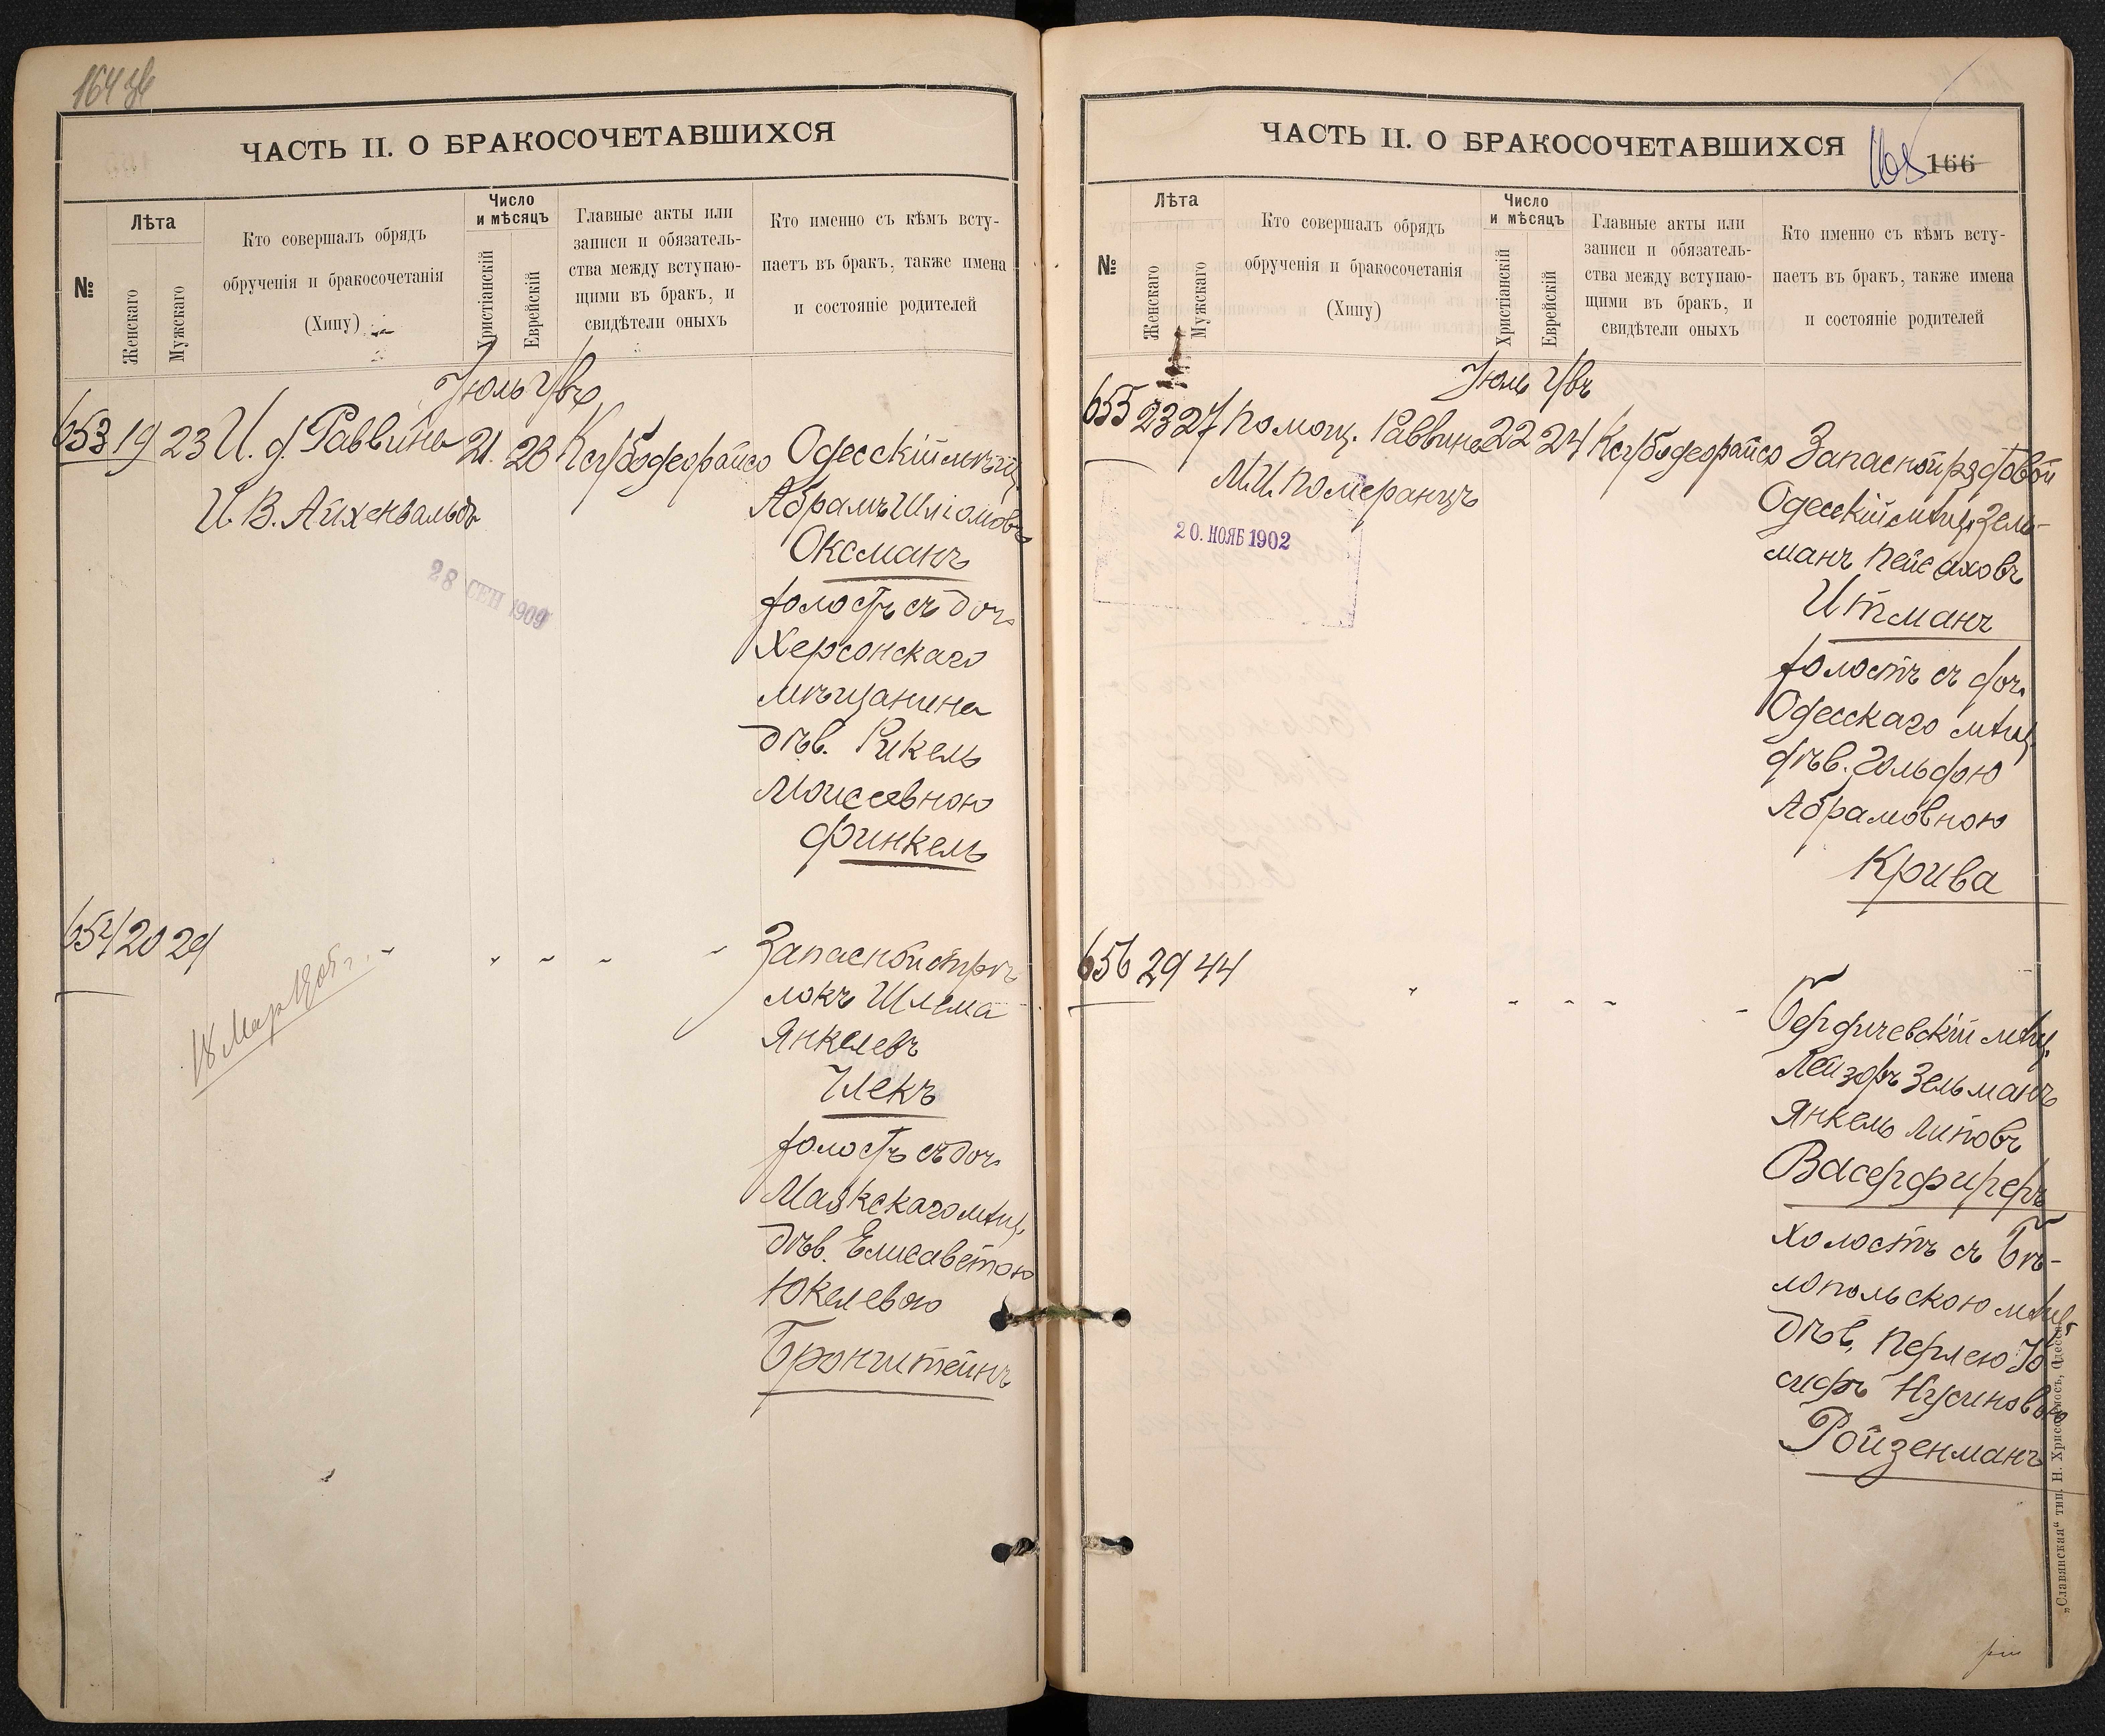 ЧАСТЬ II. О БРАКОСОЧЕТАВШИХСЯ
№
Лѣта
Женскаго
Мужскаго
Кто совершалъ обрядъ
обрученія и бракосочетанія
(Хипу)
Число
и мѣсяцъ
Христіанскій
Еврейскій
Главные акты или
записи и обязатель-
ства между вступаю-
щими въ бракъ, и
свидѣтели оныхъ
Кто именно съ кѣмъ всту-
паетъ въ бракъ, также имена
и состояніе родителей
Іюль
653 19 23 И. д. Раввина 21. 23
И. В. Айхенвальдъ
28 СЕН 1909
Одесскій мѣщ.
Абрамъ Шліомовъ
Оксманъ
холостъ съ доч.
Херсонскаго
мѣщанина
дѣв. Рикель
Моисеевною
Финкель
654 20 29
18 Мар 1905 г.
Запасной стрѣ-
локъ Шлема
Янкелевъ
Члекъ
холостъ съ доч.
Маякскаго мѣщ.
дѣв. Елисаветою
Юкелевою
Бронштейнъ
ЧАСТЬ II. О БРАКОСОЧЕТАВШИХСЯ
166
№
Лѣта
Женскаго
Мужскаго
Кто совершалъ обрядъ
обрученія и бракосочетанія
(Хипу)
Число
и мѣсяцъ
Христіанскій
Еврейскій
Главные акты или
записи и обязатель-
ства между вступаю-
щими въ бракъ, и
свидѣтели оныхъ
Кто именно съ кѣмъ всту-
паетъ въ бракъ, также имена
и состояніе родителей
Іюль
655 23 27 Помощ. Раввина 22 24
М. И. Померанцъ
20. НОЯБ 1902
Запасной рядовой
Одесскій мѣщ. Зель-
манъ Пейсаховъ
Итманъ
холостъ съ доч.
Одесскаго мѣщ.
дѣв. Гольдою
Абрамовною
Крива
656 29 44
Бердичевскій мѣщ.
Лейзоръ Зельманъ
Янкель Липовъ
Васерфиреръ
холостъ съ Бѣ-
лопольскою мѣщ.
дѣв. Перлею Іо
сифъ Нусиновою
Ройзенманъ
„Славянская“ тип. Н. Хрисогелосъ, Одесса